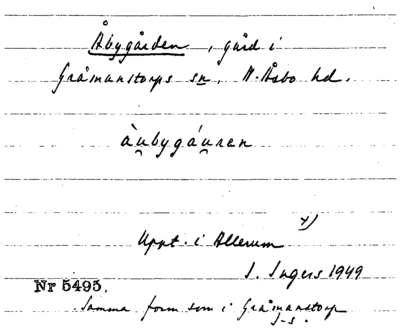 Åbygården, gård i
Gråmanstorps sn, N. Åsbo hd.
àu̯bygáu̯ren
Uppt. i Allerum x)
I. Ingers 1949
Nr 5495.
Samma form som i Gråmanstorp